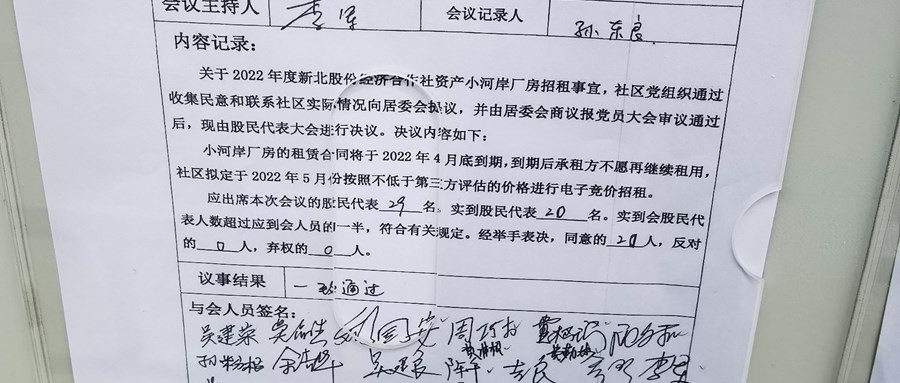 会议主持人 李军 会议记录人 孙东良
内容记录：
关于 2022 年度新北股份经济合作社资产小河岸厂房招租事宜，社区党组织通过
收集民意和联系社区实际情况向居委会提议，并由居委会商议报党员大会审议通过
后，现由股民代表大会进行决议。决议内容如下：
小河岸厂房的租赁合同将于 2022 年 4 月底到期，到期后承租方不愿再继续租用，
社区拟定于 2022 年 5 月份按照不低于第三方评估的价格进行电子竞价招租。
应出席本次会议的股民代表 29 名，实到股民代表 20 名。实到会股民代
表人数超过应到会人员的一半，符合有关规定。经举手表决，同意的 20 人，反对
的 0 人，弃权的 0 人。
议事结果 一致通过
与会人员签名：
吴建荣